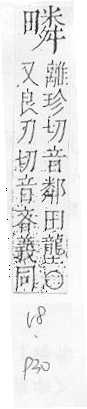 疄
離珍切音鄰田壟○
又良刃切音吝義同
18.
P30